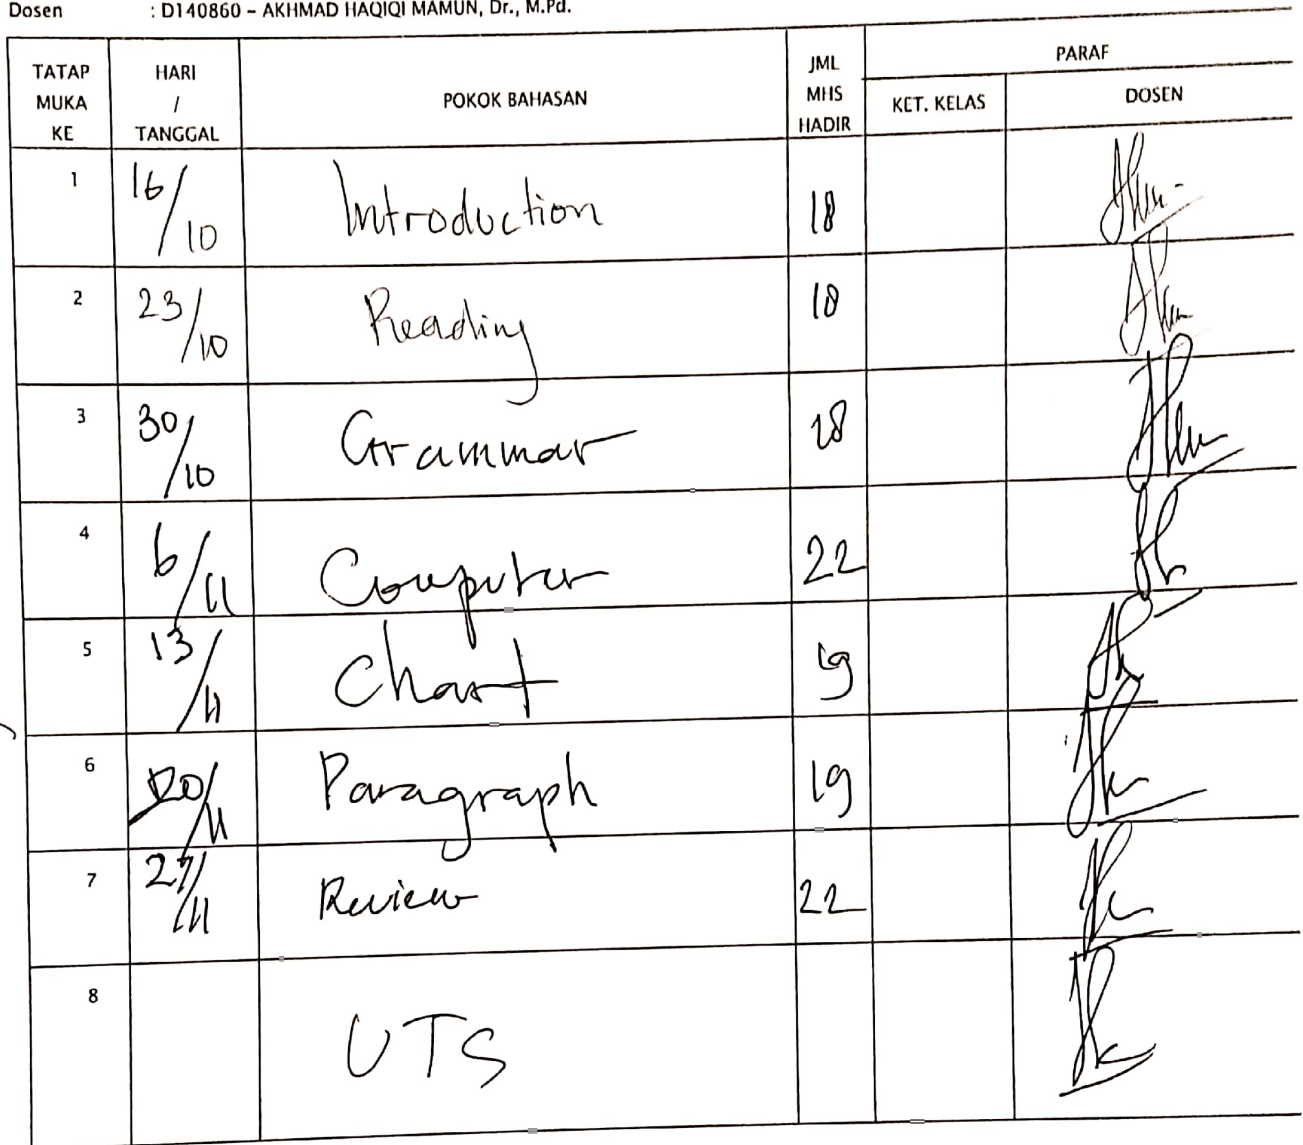 Dosen : D140860 - AKHMAD HAQIQI MAMUN, Dr., M.Pd.
TATAP MUKA KE HARI / TANGGAL POKOK BAHASAN JML MHS HADIR PARAF
KET. KELAS DOSEN
1 16/10 Introduction 18
2 23/10 Reading 18
3 30/10 Grammar 18
4 6/11 Computer 22
5 13/11 Chart 19
6 20/11 Paragraph 19
7 27/11 Review 22
8 UTS